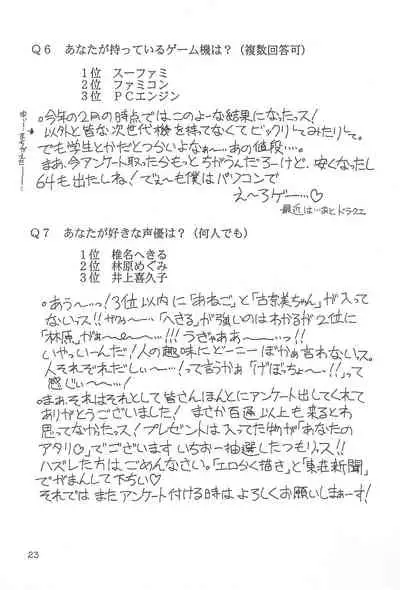 Q6 あなたが持っているゲーム機は?(複数回答可)
1位 スーファミ
2位 ファミコン
3位 PCエンジン
○今年の2月の時点ではこのよーな結果になったっス!
以外と皆な次世代機を持ってなくてビックリしてみたりして。
でも学生とかだとつらいよなぁ〜…あの値段…。
まぁ、今アンケート取ったらもっとちがうんだろーけど、安くなったし
64も出たしね!でぇ〜も僕はパソコンで
え〜ろゲー…♡
最近は…あとドラクエ
Q7 あなたが好きな声優は?(何人でも)
1位 椎名へきる
2位 林原めぐみ
3位 井上喜久子
○あぅ〜…っ!3位以内に「あねご」と「古奈美ちゃん」が入って
ないっス!!ガァ〜…「へきる」が強いのはわかるが2位に
「林原」がぁ〜…!!!うぎゃぁぁ〜…っ!!
いやっいーんだ!人の趣味にどーこー ぼかぁ言わないっス。
人それぞれだしぃ〜…!って言うかぁ「げぼちょ〜.!!」って
感じぃ〜…!
○まぁ、それはそれとして皆さんほんとにアンケート出してくれて
ありがとうございました! まさか百通以上も来るとわ
思ってなかったっス!プレゼントは入ってた物が「あなたの
アタリ♡」でございます いちおー抽選したつもりっス!!
ハズレた方はごめんなさい。「エロらく描き」と「東荘新聞」
でがまんして下ちい♡
それでは またアンケート付ける時は よろしくお願いしまぁーす!
23